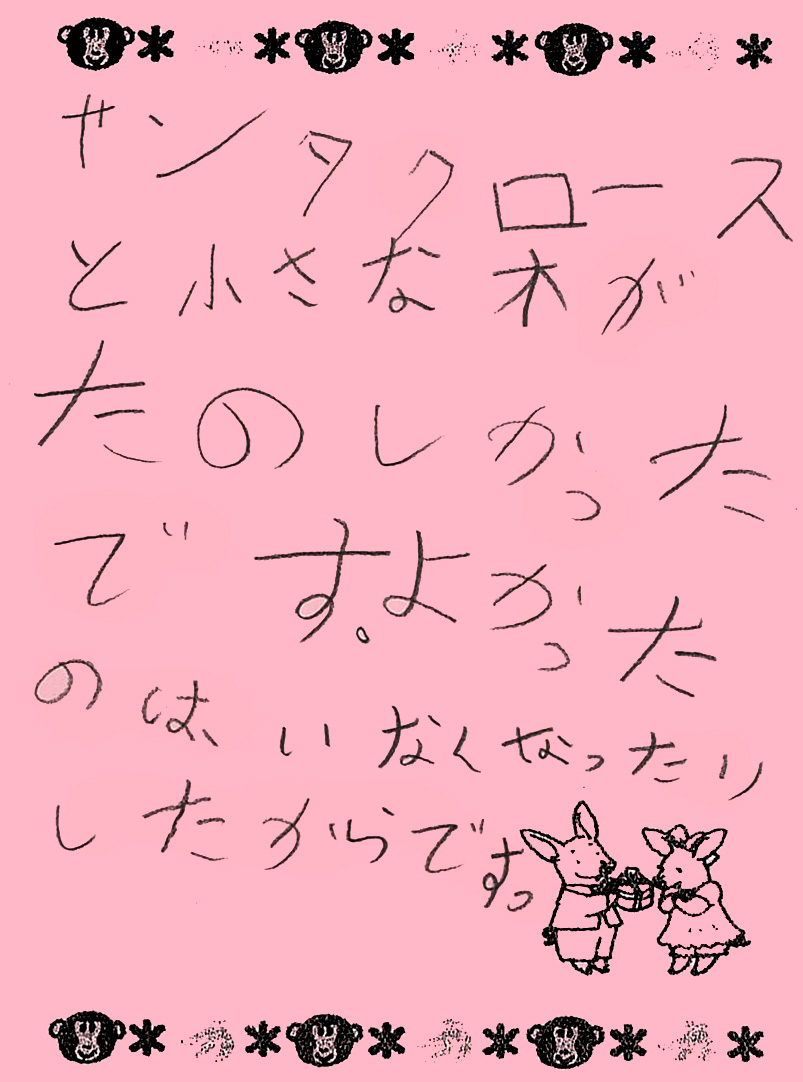 サンタクロース
と小さな木が
たのしかった
です。よかった
のは、いなくなったり
したからですっ